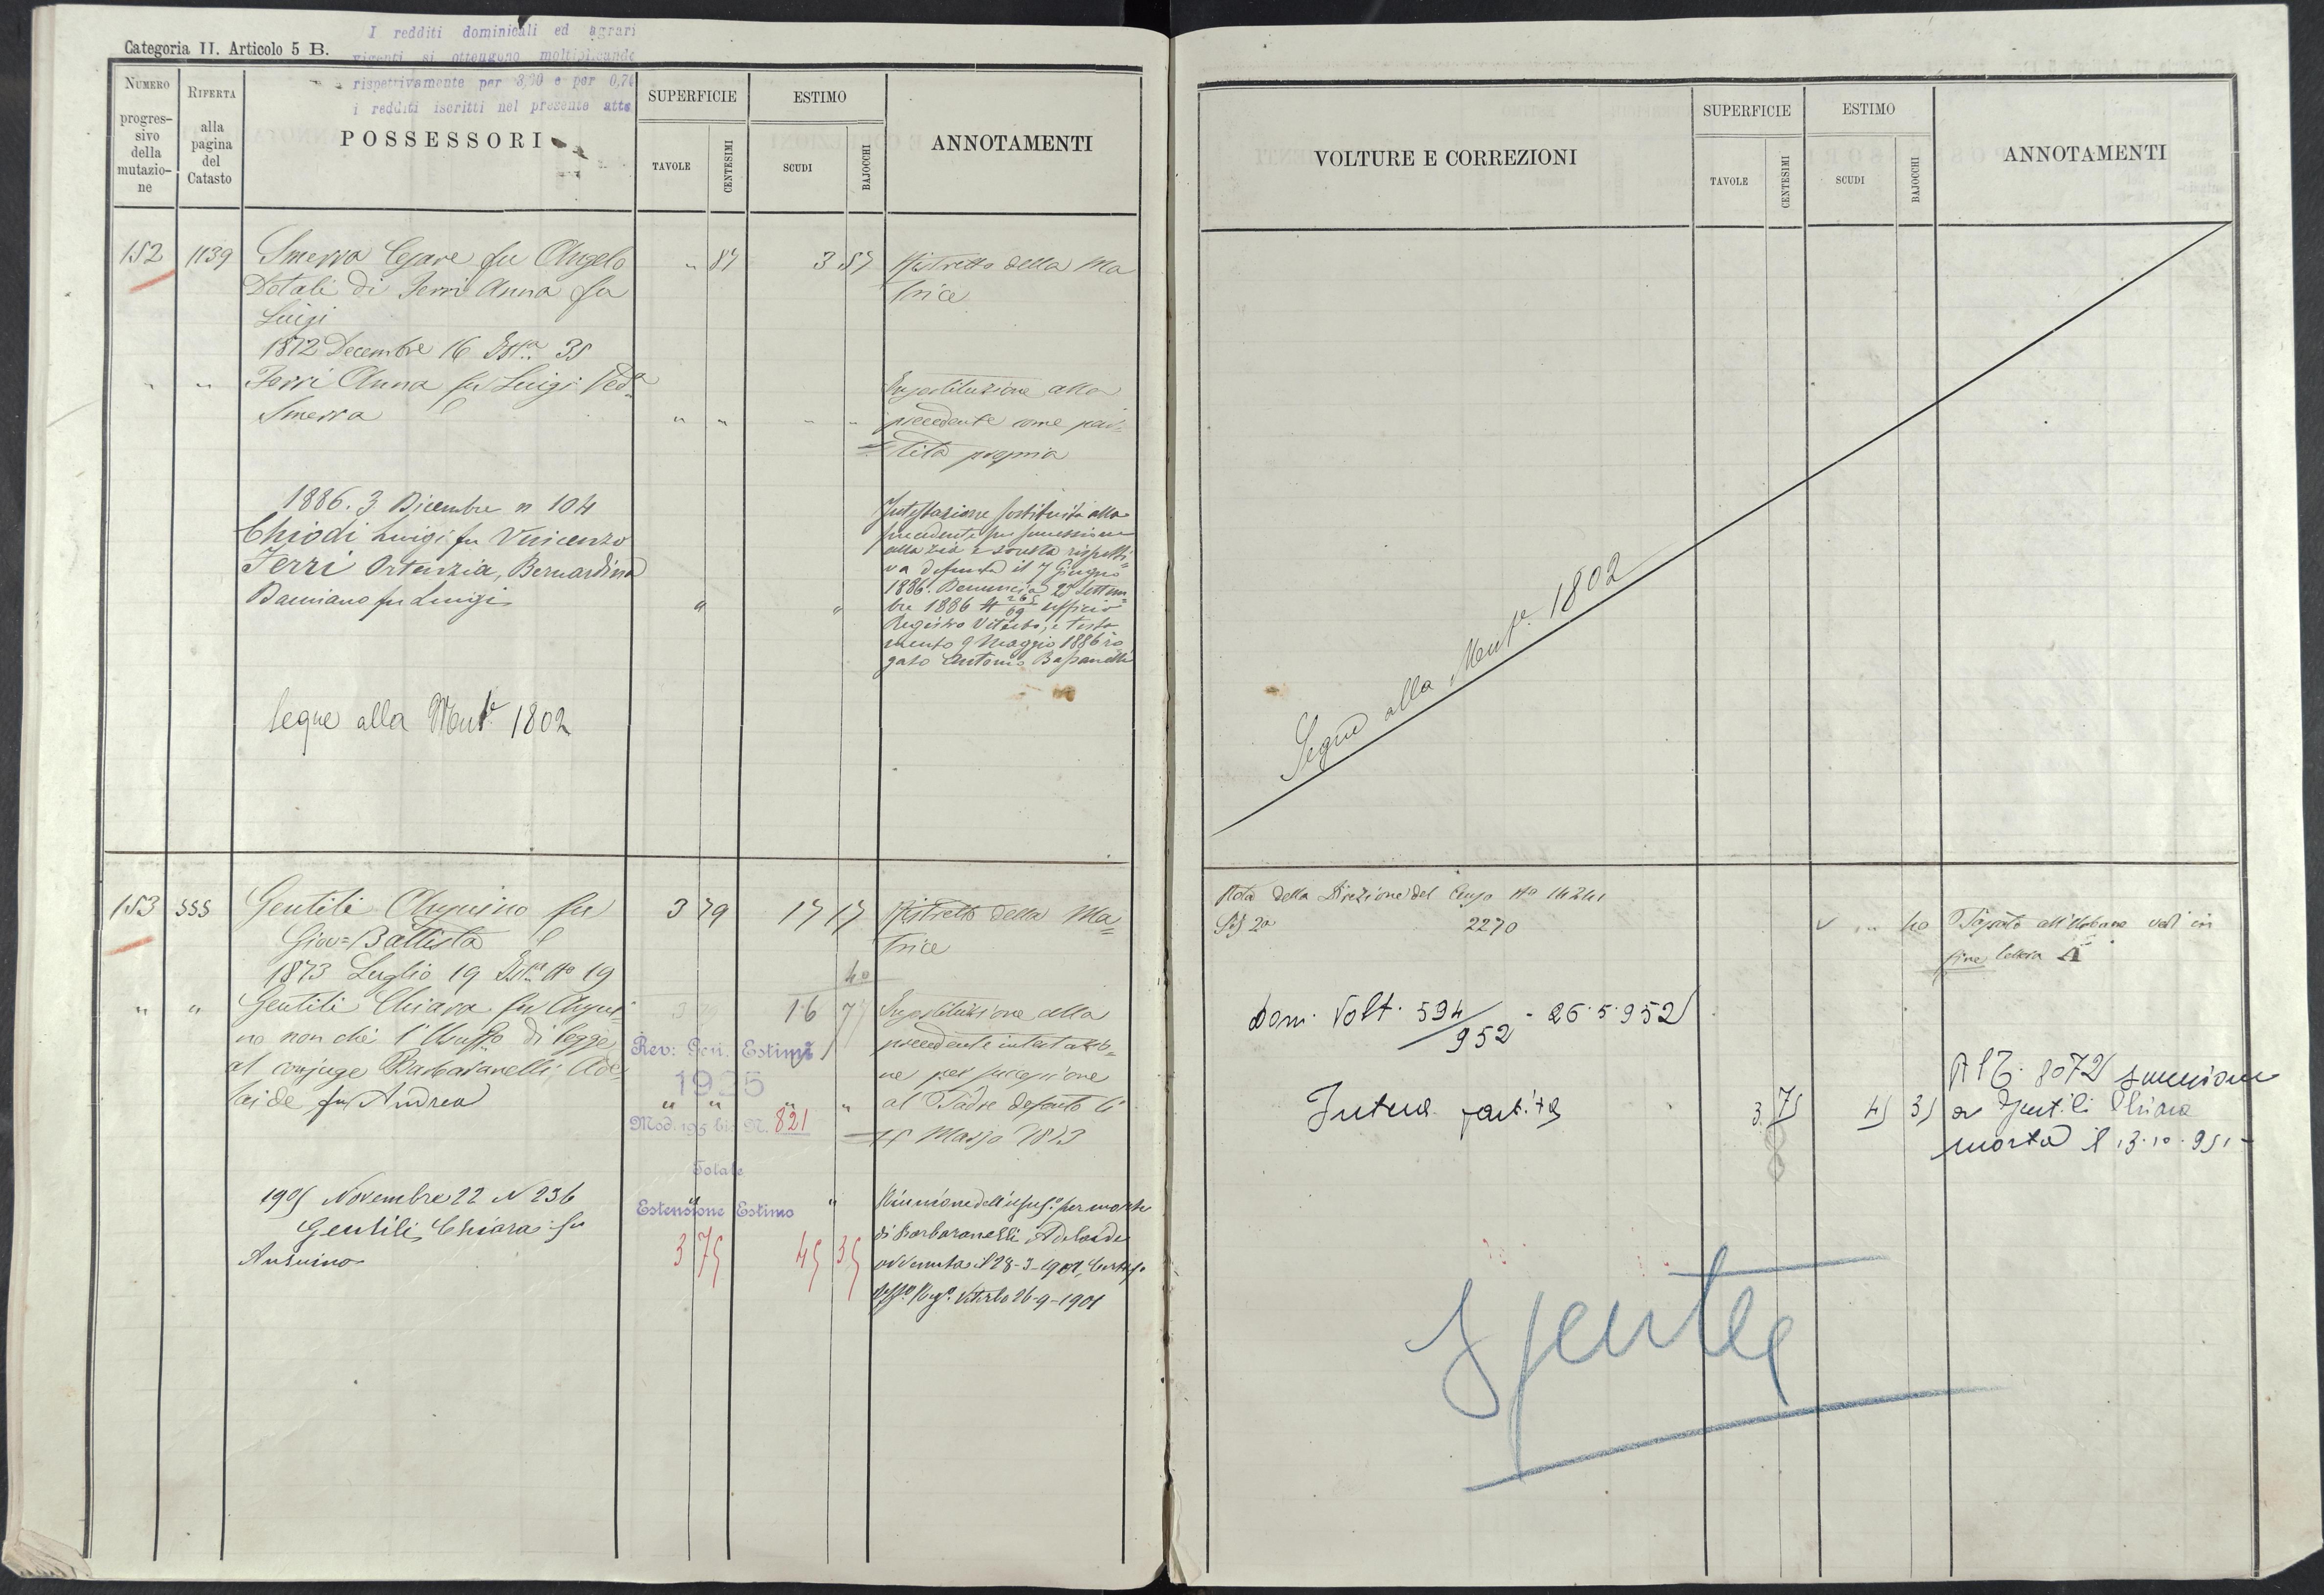 Categoria II. Articolo 5 B.
I redditi dominicali ed agrari
vigenti si ottengono moltiplicando
rispettivamente per 3,20 e per 0,70
i redditi iscritti nel presente atto
NUMERO
progres-
sivo
della
mutazio-
ne
RIFERTA
alla
pagina
del
Catasto
POSSESSORI
SUPERFICIE
TAVOLE
CENTESIMI
ESTIMO
SCUDI
BAJOCCHI
ANNOTAMENTI
152 1139 Smerra Cesare fu Angelo " 87 3 57 Ristretto della Ma
Dotali di Ferri Anna fu trice
Luigi
1872 Decembre 16 35
" " Ferri Anna fu Luigi Ved.a alla
Smerra " " " " precedente come par=
tita propria
1886. 3 Dicembre n 104 Intestazione sostituita alla
Chiodi Luigi fu Vincenzo precedente per successione
Ferri Ortenzia, Bernardina alla zia e sorella rispetti=
Damiano fu Luigi " " va defunta il 7 Giugno
1886. Denuncia 23 Settem=
bre 1886 N 265/69 ufficio
Registro Viterbo, e testa
mento 9 Maggio 1886 ro
gato Antonio
Segue alla Mut.e 1802
153 555 Gentili fu 3 79 17 17 Ristretto della Ma=
Giov=Battista trice
1873 Luglio 19 No 19 40
" " Gentili Chiara fu 16 7 alla
no non chè l' di legge precedente intestazio=
al conjuge Barbaranelli Ade= ne per successione
laide fu Andrea " " " " al Padre defonto li
Marzo 1873
Rev: Gen. Estimi
1925
Mod. 195 bis N. 821
Totale
Estensione Estimo
3 75 45 35
1905 Novembre 22 N 236 " " Riunione dell'usuf.o per morte
Gentili Chiara fu di Barbaranelli Adelaide
Ansuino avvenuta il 28-3-1901, Certif.o
Uff.o Reg.o Viterbo 26-9-1901
VOLTURE E CORREZIONI
SUPERFICIE
TAVOLE
CENTESIMI
ESTIMO
SCUDI
BAJOCCHI
ANNOTAMENTI
Segue alla Mut.e 1802
Nota della Direzione del Censo No
2270 40 all'Urbano vedi in
fine lettera A
Dom. Volt. 594/952 - 26.5.952
8072 successione
Intera partita 3 75 45 35 a Gentili Chiara
morta il 13.10.951-
Spenta